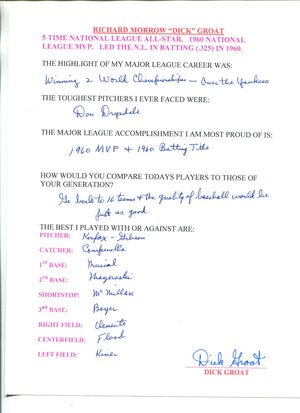 RICHARD MORROW "DICK" GROAT
5 TIME NATIONAL LEAGUE ALL-STAR. 1960 NATIONAL
LEAGUE MVP. LED THE N.L. IN BATTING (.325) IN 1960.
THE HIGHLIGHT OF MY MAJOR LEAGUE CAREER WAS:
Winning 2 World Championships - Over the Yankees
THE TOUGHEST PITCHERS I EVER FACED WERE:
Don Drysdale
THE MAJOR LEAGUE ACCOMPLISHMENT I AM MOST PROUD OF IS:
1960 MVP & 1960 Batting Title
HOW WOULD YOU COMPARE TODAYS PLAYERS TO THOSE OF
YOUR GENERATION?
Go back to 16 teams & the quality of baseball would be
just as good.
THE BEST I PLAYED WITH OR AGAINST ARE:
PITCHER: Koufax - Gibson
CATCHER: Campanella
1ST BASE: Musial
2ND BASE: Mazeroski
SHORTSTOP: McMillan
3RD BASE: Boyer
RIGHT FIELD: Clemente
CENTERFIELD: Flood
LEFT FIELD: Kiner
Dick Groat
DICK GROAT